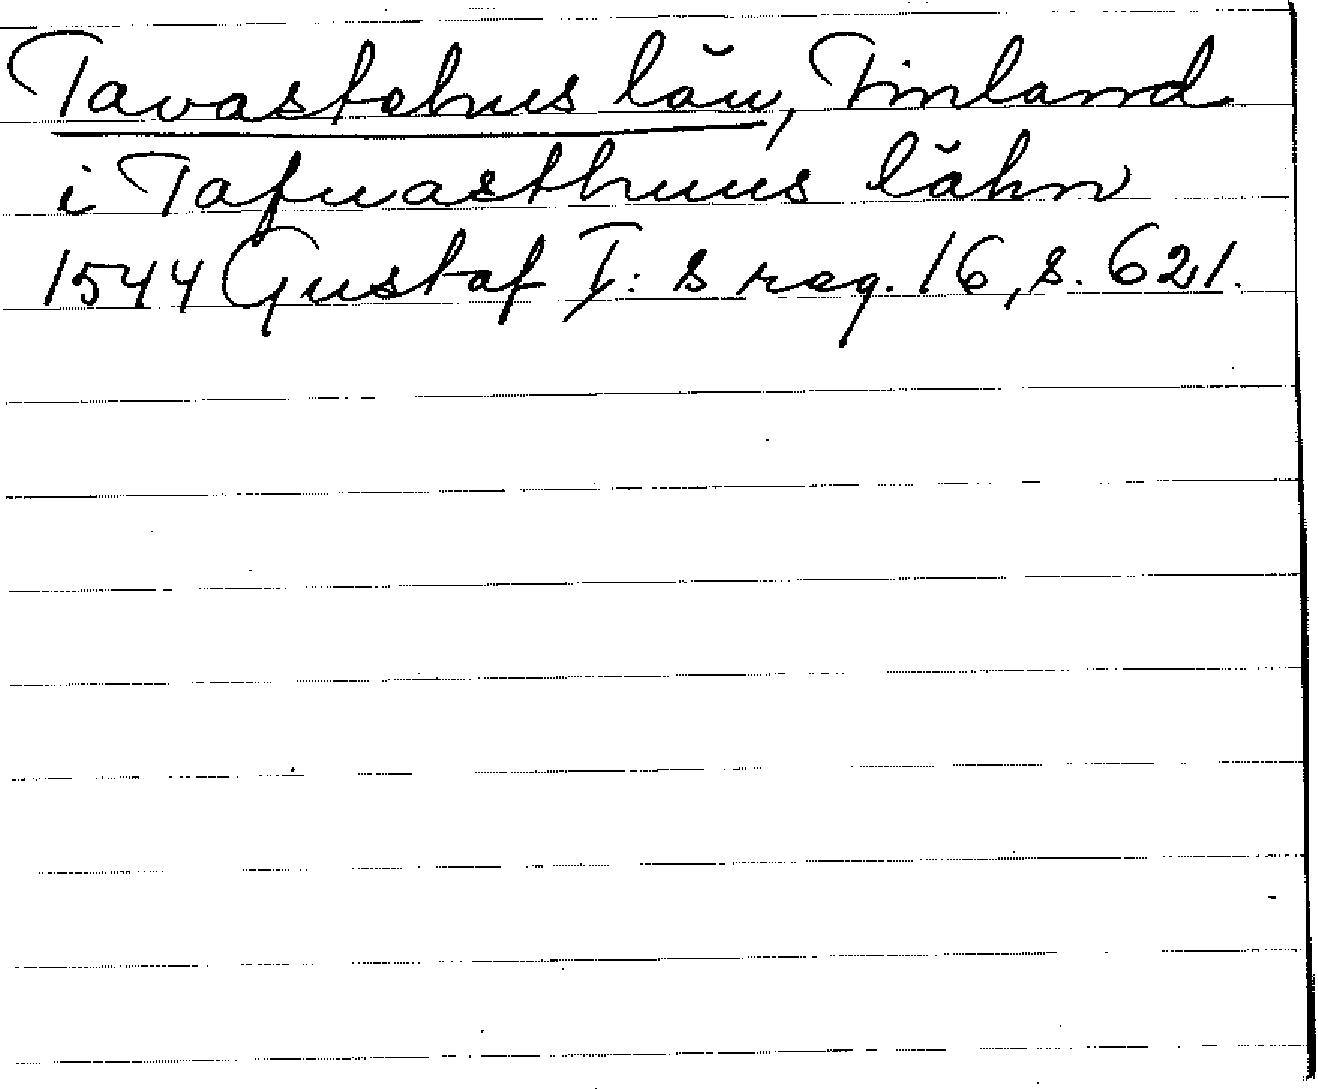 Tavastehus län, Finland
i Tafuasthuus lähn
1544 Gustaf I:s reg. 16, s. 621.